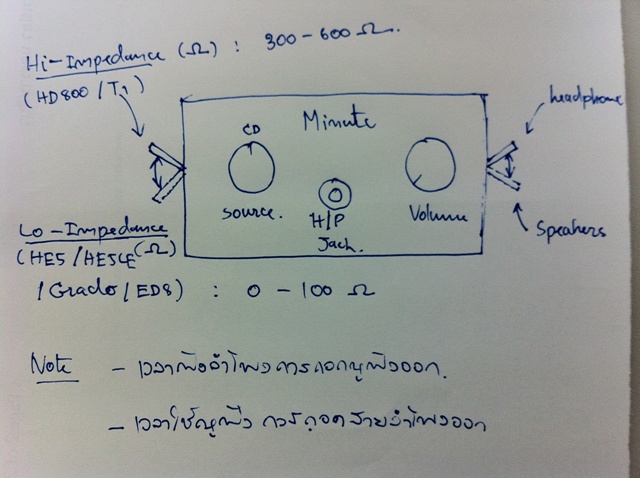 Hi-Impedance (Ω) : 300-600 Ω.
(HD800 / T1)
headphone
CD
Minute
source.
H/P
Jack.
Volume
Speakers
Lo-Impedance (Ω)
(HE5 / HE5LE
/ Grado / ED8) : 0 - 100 Ω
Note - เวลาฟังลำโพงควรถอดหูฟังออก.
- เวลาใช้หูฟัง ควรถอดสายลำโพงออก